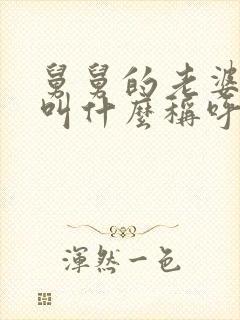 舅舅的老婆
叫什麼稱呼
渾然一色